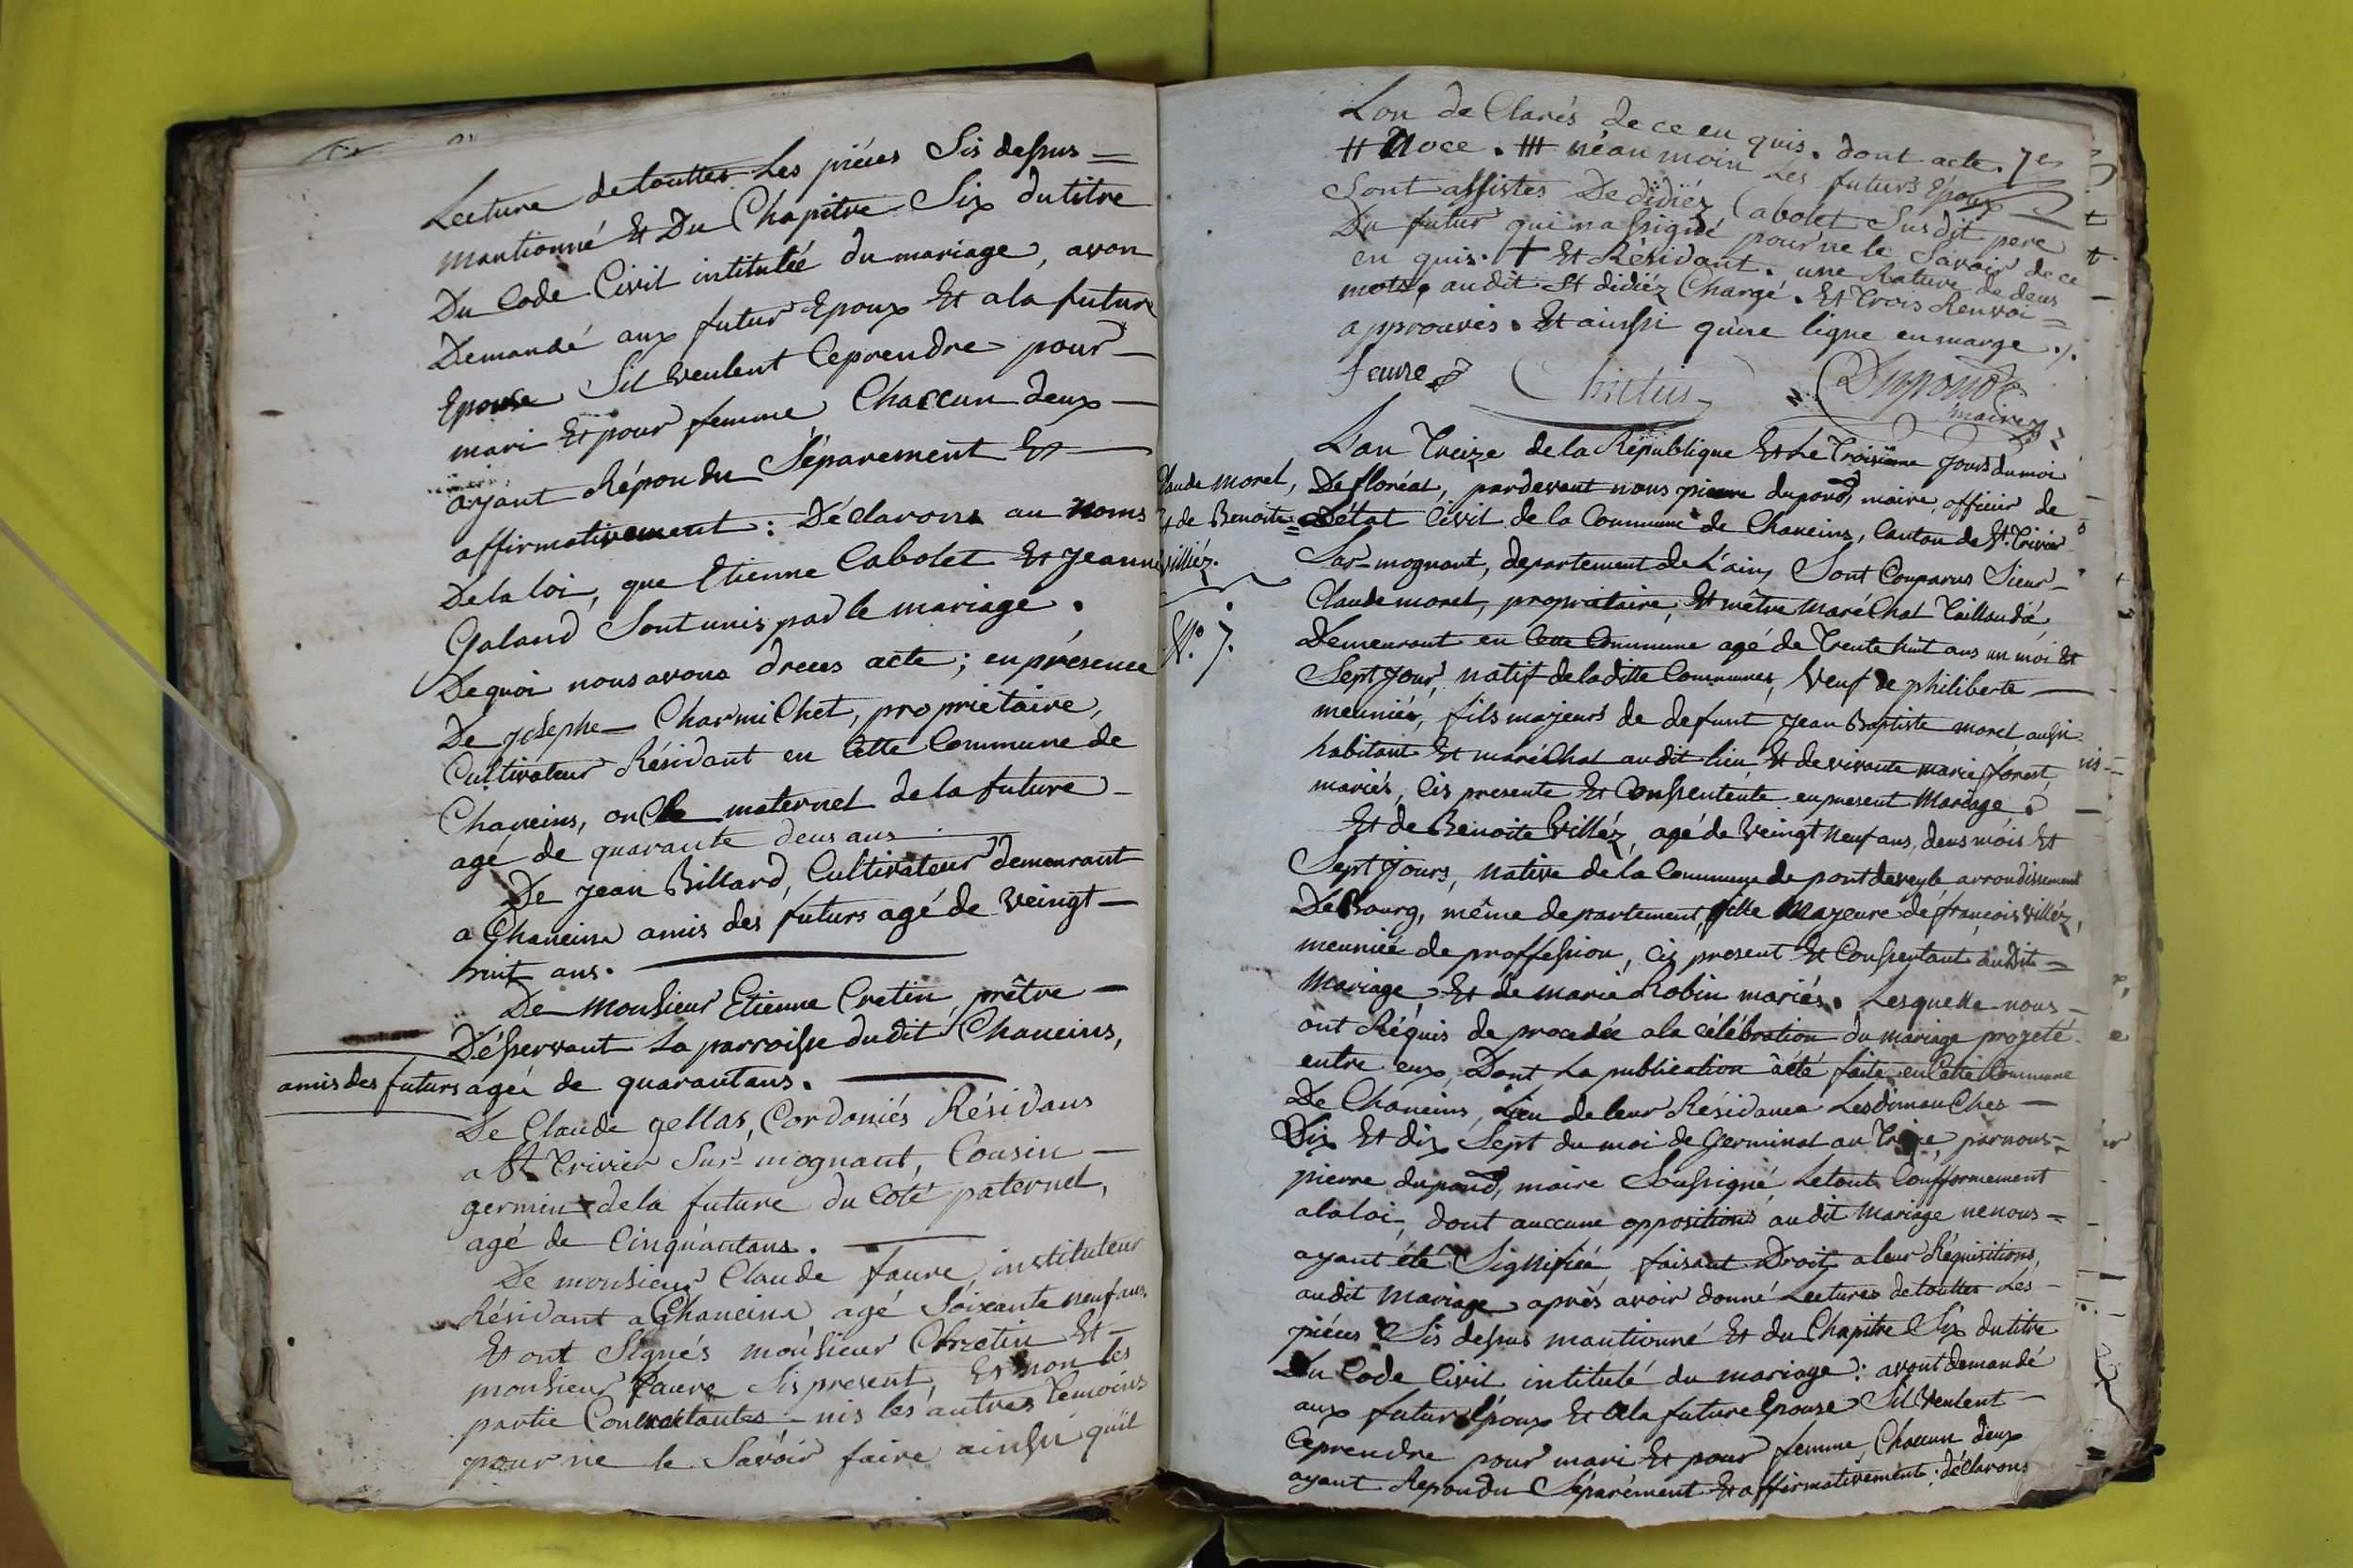 Lecture de touttes Les piéces Sis dessus =
mantionné Et Du Chapitre Six du titre
Du Code Civil intitulée du mariage, avon
Demandé aux futur Epoux Et a la future
Epouse Sil veulent ceprendre pour —
mari Et pour femme, Chaccun deux —
ayant Répondu Séparement Et —
affirmativement : Déclarons au noms
De la loi, que Etienne Cabolet Et Jeanne
Galand Sont unis par le mariage.
De quoi nous avons drecés acte ; en présence
De Josephe Charmichet, propriétaire,
Cultivateur Résidant en Cette Commune de
Chaneins, oncle maternel de la future —
agé de quarante deus ans
De Jean Billard, Cultivateur demeurant
a Chaneins amis des futurs agé de veingt —
huit ans.
De Monsieur Etienne Cretin prêtre —
Déßervant La parroisse dudit Chaneins,
amis des futurs agée de quarantans.
De Claude gellas, Cordoniés Résidans
a St Trivier Sur-mognant, Cousin —
germin de la future du Coté paternel,
agé de Cinquantans.
De monsieur Claude faure, instituteur
Résidant a Chaneins agé Soixante neuf ans.
Et ont Signés monsieur Chretin Et —
monsieur faure Sis present, Et non les
partie Contractantes — nis les autres temoins
pour ne le Savoir faire ainssi quil
Lon de Clarés de ce en quis. dont acte. 7e
++ Noce. +++ néan moin Les futurs Epoux
Sont assistés De didiéz Cabolet Susdit pere
Du futur qui na signé pour ne le Savoir de ce
en quis. + Et Résidant. une Rature de deus
mots, audit St didiéz Chargé. Et trois Renvoi =
approuvés. Et ainssi qu'une ligne en marge ./.
faure Dupond
maire
L'an Treize de la République Et Le Troisiéme Jours du moi
Claude morel,
Et de Benoite =
villiéz.
N.° 7.
De floréal, pardevant nous pierre dupond, maire officier de
Détat Civil de la Commune de Chaneins, Canton de St. Trivier
Sur-mognant, departement de L'ain, Sont Comparus Sieur —
Claude morel, propriétaire, Et mêtre maréChal Taillandié
Demeurant en Cette Commune agé de Trente huit ans un moi Et
Sept Jour, natif de la ditte Communes, Veuf de philiberte —
meuniér, fils majeurs de defunt Jean Baptiste morel aussi
habitant Et maréChal audit lieu Et de vivante marie forest,
mariés, Cis presente Et Consentente en present Mariage
Et de Benoite Villéz, agé de Veingt neuf ans, deus mois Et
Sept Jours, native de la Commune de pontdeveyle arrondissement
De Bourg, même departement, fille Majeure de françois villéz,
meuniée de proffession, Cis present Et Consentant audit =
Mariage Et de marie Robin mariés. Lesquelle nous —
ont Réquis de procedée a la célébration du mariage projeté
entre eux, Dont La publication à été faite en Cette Commune
De Chaneins, Lieu de leur Résidance Les dimanches —
Dix Et dix Sept du moi de Germinal an Treize, par nous =
pierre dupond, maire Soussigné Le tout Confformement
a la loi, dont auccune oppositions audit Mariage ne nous =
ayant été Signifiée faisant Droit a leur Réquisitions,
audit Mariage après avoir donné Lectures de touttes Les —
piéces Sis dessus mantionné Et du Chapitre Six du titre
Du Code Civil intitulé du mariage : avont demandé
aux futur Epoux Et a la future Epouse Sil Veulent —
Ceprendre pour mari Et pour femme, Chaccun deux
ayant Repondu Séparément Et affirmativement : déclarons